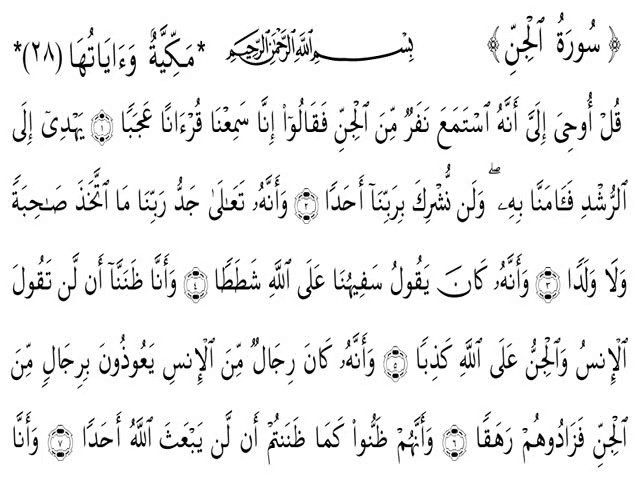 ﴿ سُورَةُ ٱلْجِنِّ ﴾ بِسْمِ ٱللَّهِ ٱلرَّحْمَٰنِ ٱلرَّحِيمِ *مَكِّيَّةٌ وَءَايَاتُهَا (٢٨)*
قُلْ أُوحِىَ إِلَىَّ أَنَّهُ ٱسْتَمَعَ نَفَرٌ مِّنَ ٱلْجِنِّ فَقَالُوٓا۟ إِنَّا سَمِعْنَا قُرْءَانًا عَجَبًا ١ يَهْدِىٓ إِلَى
ٱلرُّشْدِ فَـَٔامَنَّا بِهِۦ ۖ وَلَن نُّشْرِكَ بِرَبِّنَآ أَحَدًا ٢ وَأَنَّهُۥ تَعَٰلَىٰ جَدُّ رَبِّنَا مَا ٱتَّخَذَ صَٰحِبَةً
وَلَا وَلَدًا ٣ وَأَنَّهُۥ كَانَ يَقُولُ سَفِيهُنَا عَلَى ٱللَّهِ شَطَطًا ٤ وَأَنَّا ظَنَنَّآ أَن لَّن تَقُولَ
ٱلْإِنسُ وَٱلْجِنُّ عَلَى ٱللَّهِ كَذِبًا ٥ وَأَنَّهُۥ كَانَ رِجَالٌ مِّنَ ٱلْإِنسِ يَعُوذُونَ بِرِجَالٍ مِّنَ
ٱلْجِنِّ فَزَادُوهُمْ رَهَقًا ٦ وَأَنَّهُمْ ظَنُّوا۟ كَمَا ظَنَنتُمْ أَن لَّن يَبْعَثَ ٱللَّهُ أَحَدًا ٧ وَأَنَّا